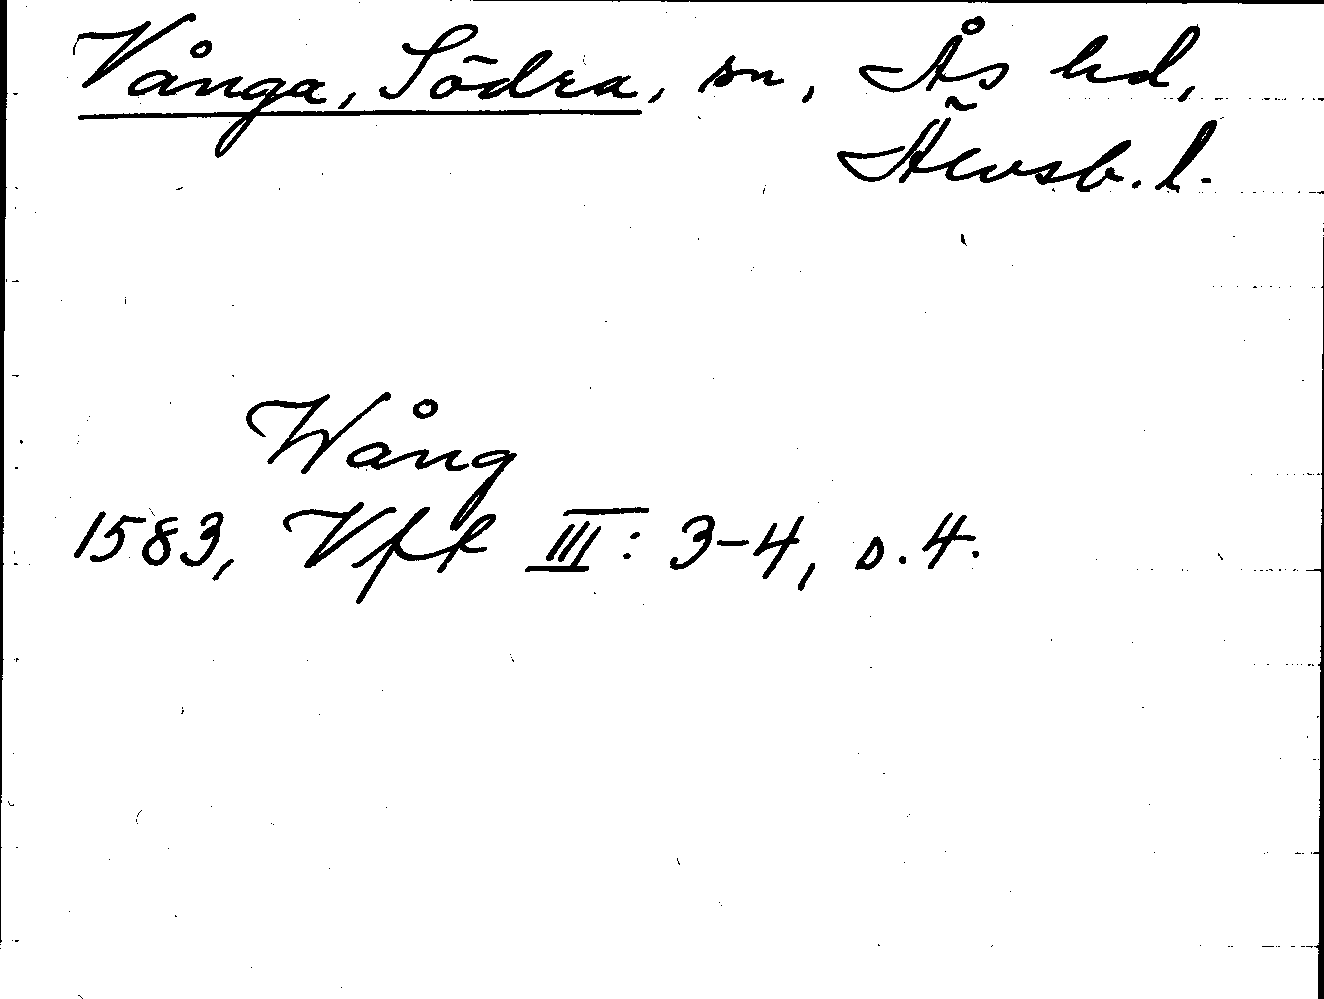 Vånga, Södra, sn, Ås hd,
Älvsb. l.
Wång
1583, Vfft III: 3-4, s. 4.